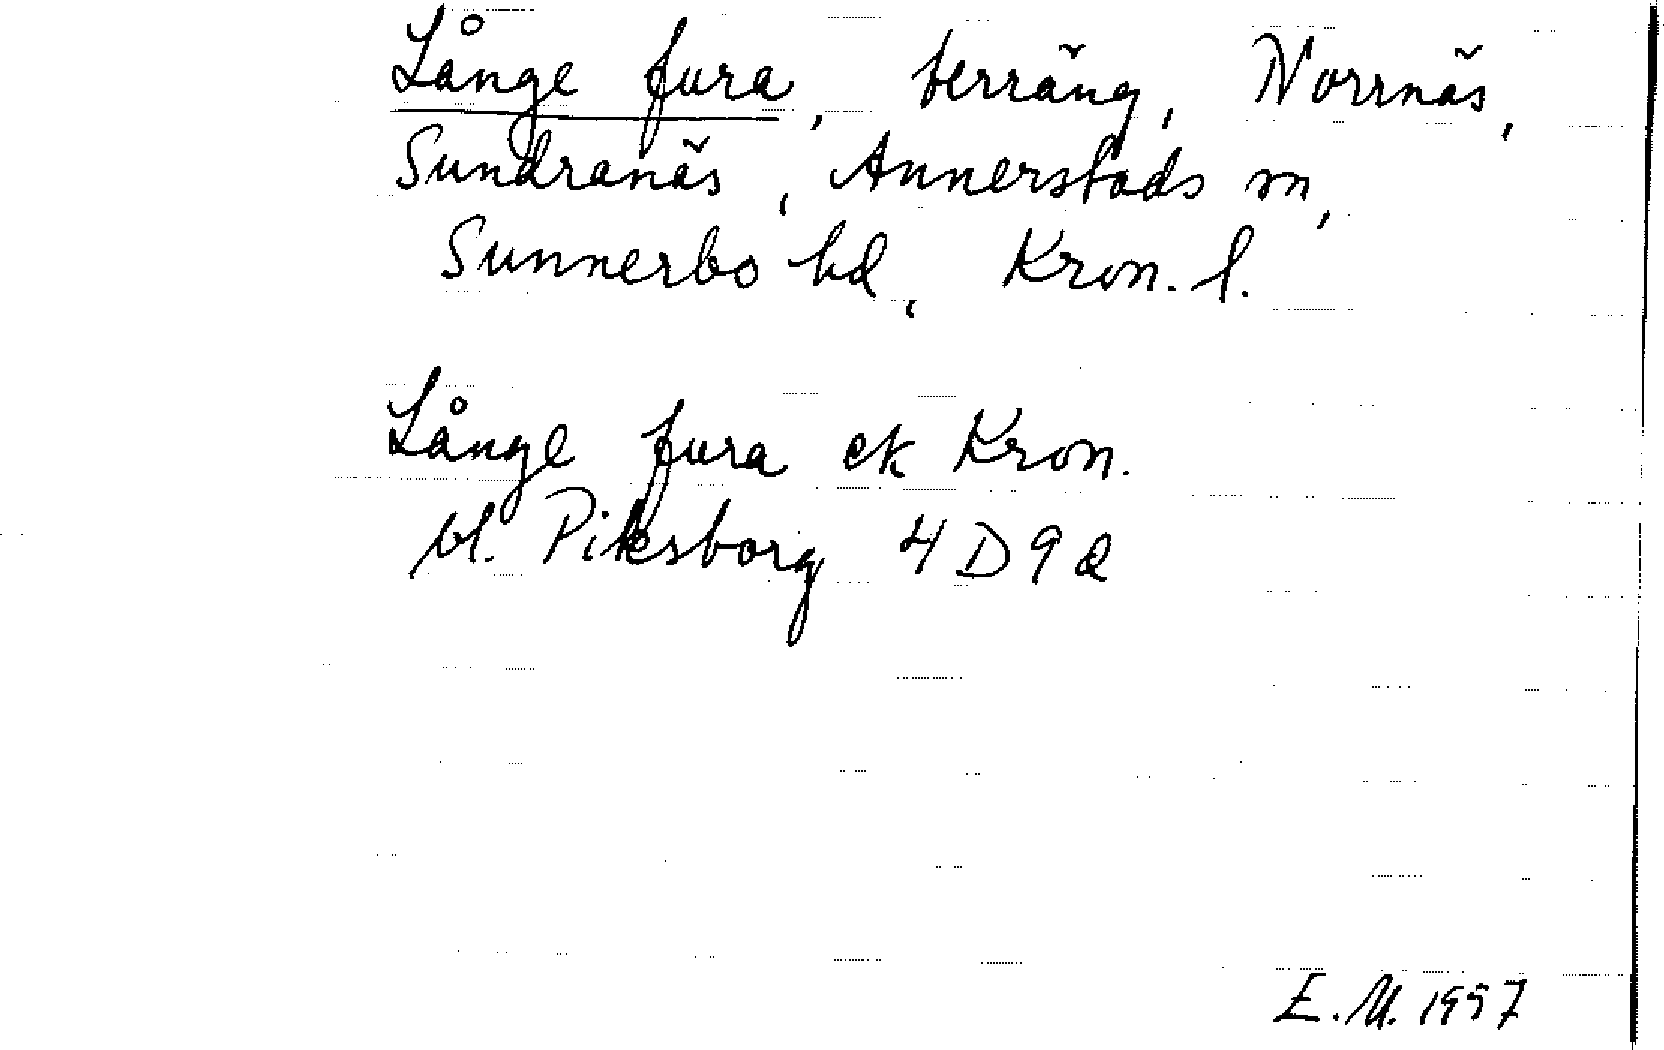 Långe fura, terräng, Norrnäs,
Sundranäs, Annerstads sn,
Sunnerbo hd, Kron. l.
Långe fura ek Kron.
bl. Piksborg 4D9a
E.M. 1957